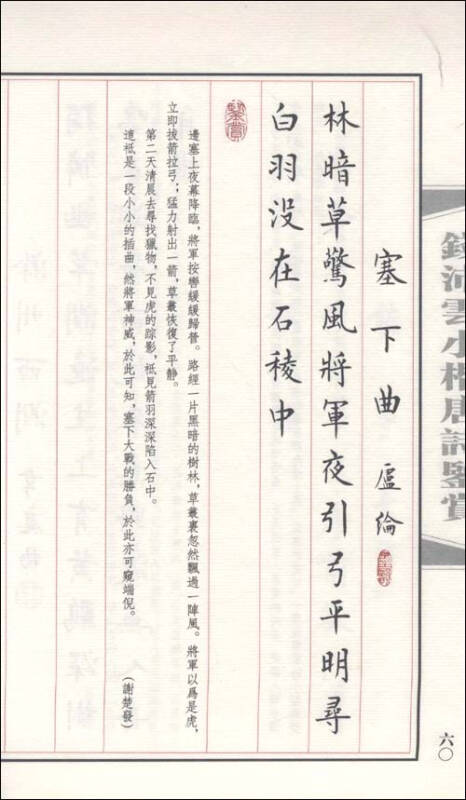 錢沛雲小楷唐詩鑒賞
六〇
塞下曲 盧綸
林暗草驚風將軍夜引弓平明尋
白羽没在石稜中
鑒賞
邊塞上夜幕降臨,將軍按轡緩緩歸營。路經一片黑暗的樹林,草叢裏忽然飄過一陣風。將軍以爲是虎,
立即拔箭拉弓;猛力射出一箭,草叢恢復了平靜。
第二天清晨去尋找獵物,不見虎的踪影,祗見箭羽深深陷入石中。
這祗是一段小小的插曲,然將軍神威,於此可知,塞下大戰的勝負,於此亦可窺端倪。 (謝楚發)